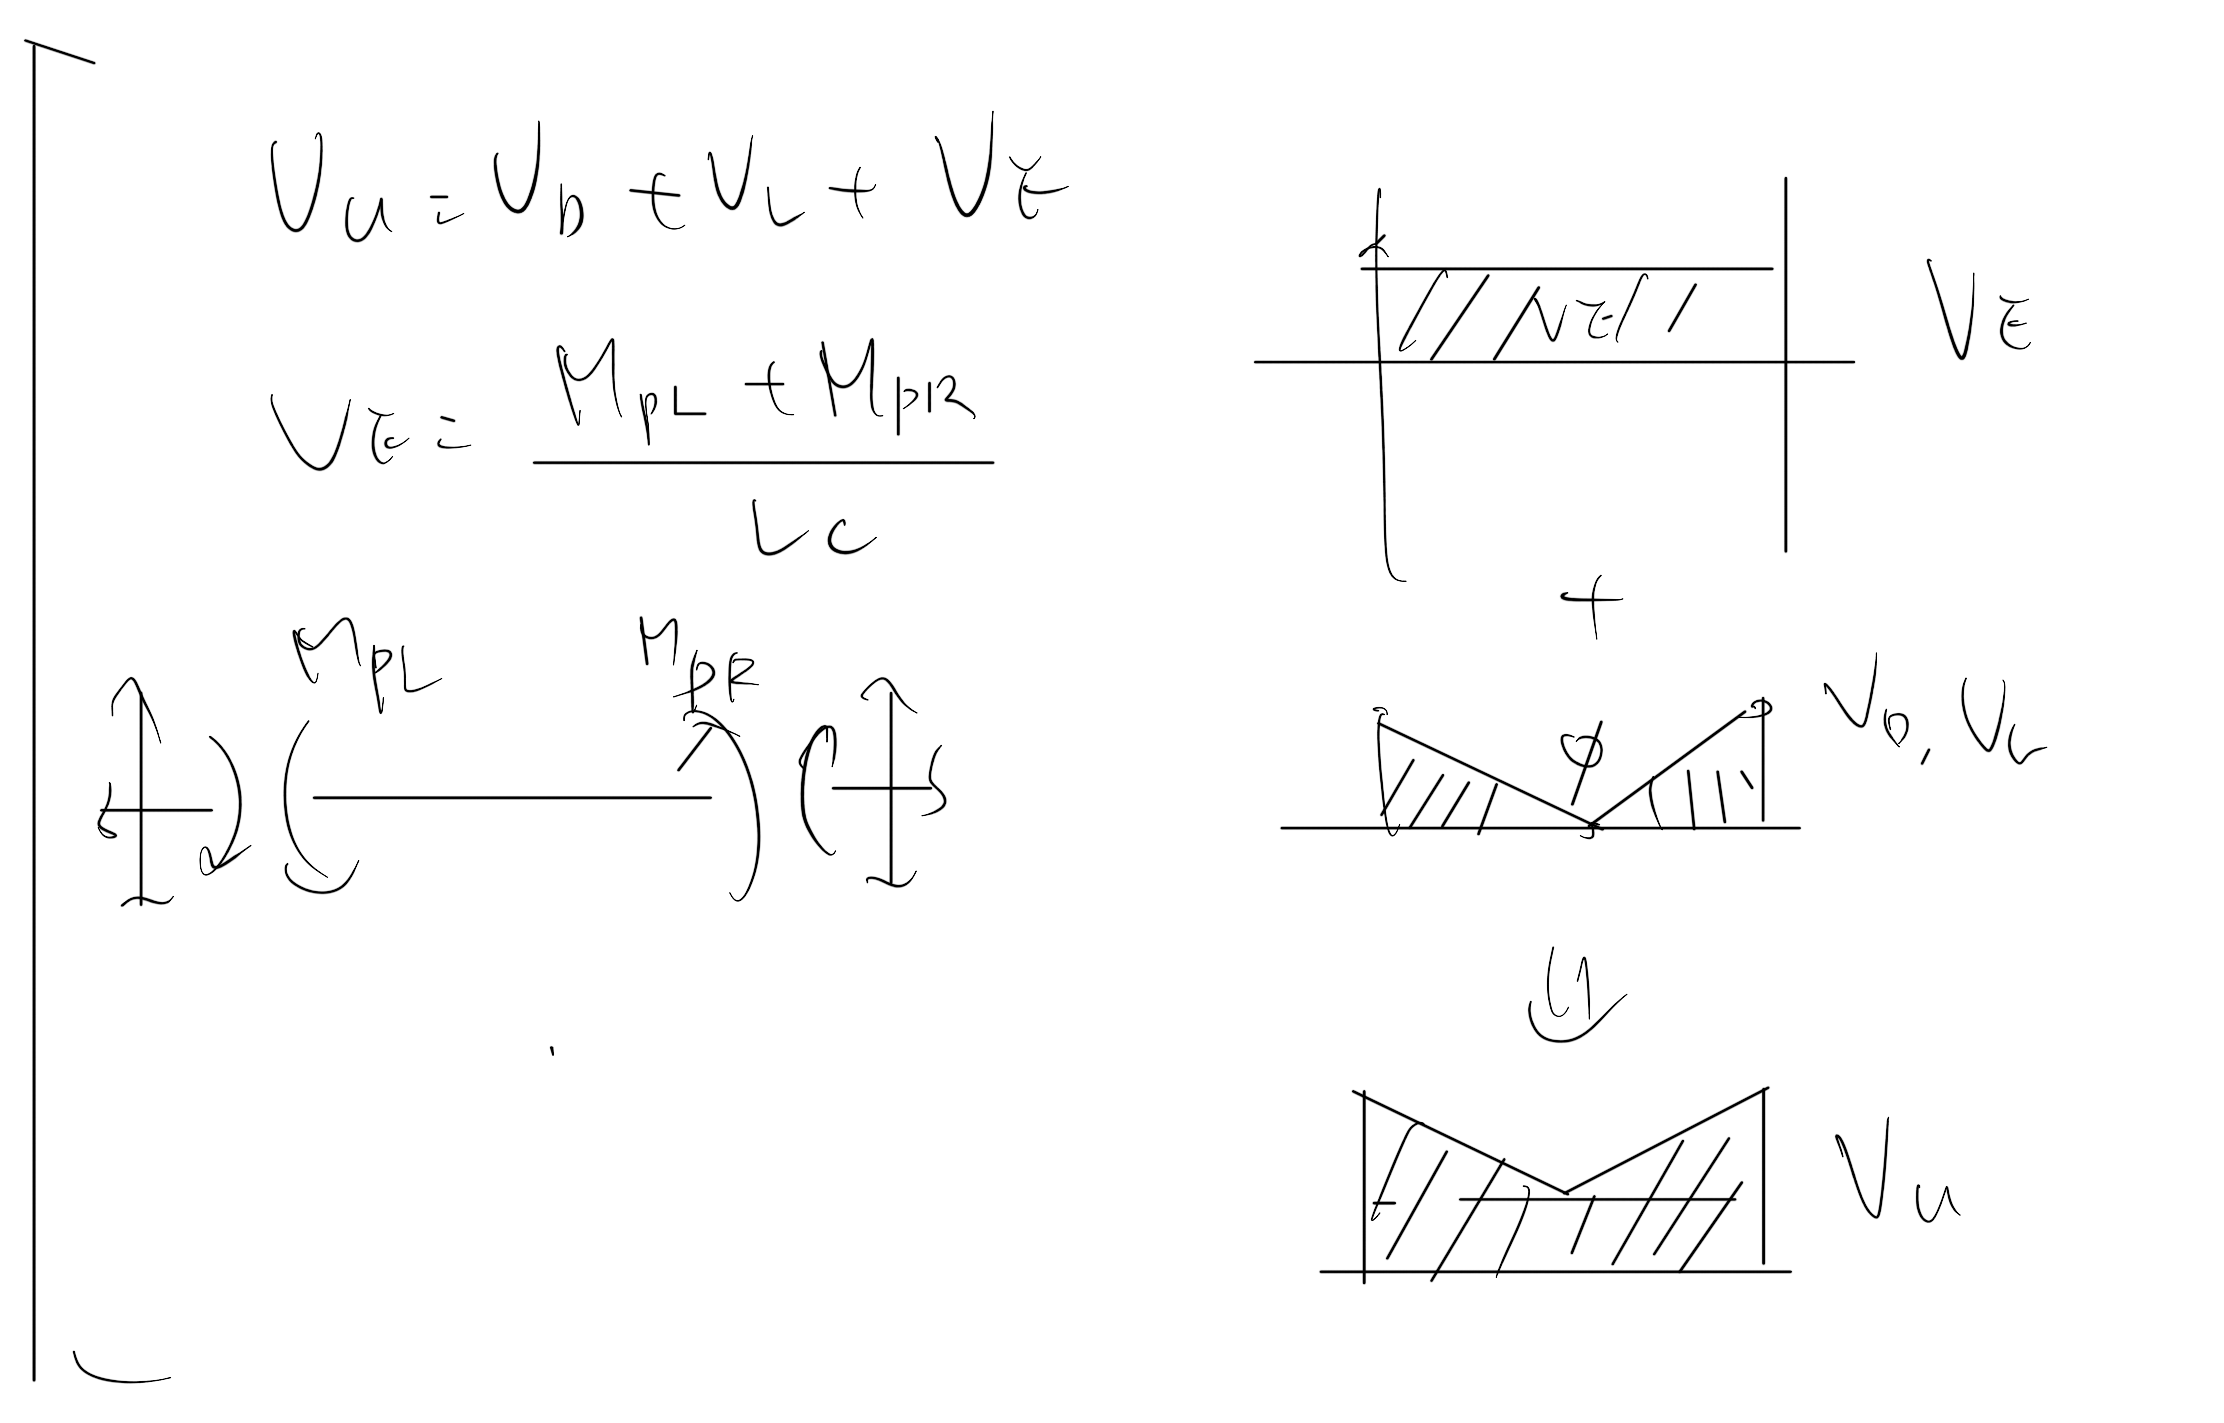 Vu = VD + VL + VE
VE = (MpL + MpR) / Lc
MpL MpR
VE
VE
+
VD, VL
Vu